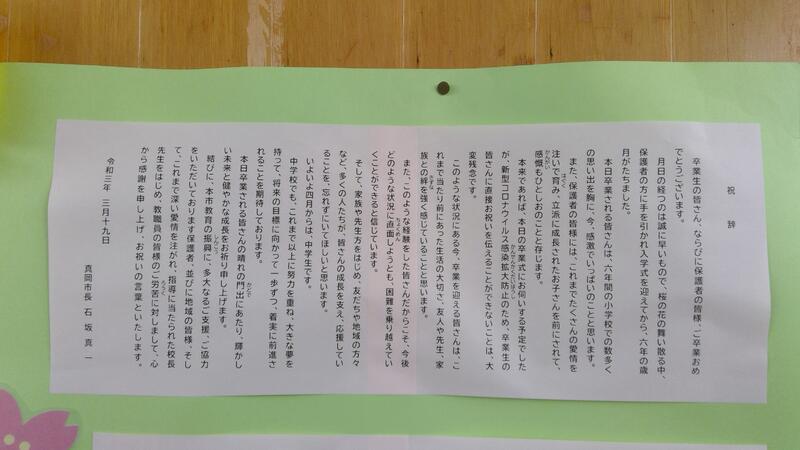 祝　辞
卒業生の皆さん、ならびに保護者の皆様、ご卒業おめ
でとうございます。
月日の経つのは誠に早いもので、桜の花の舞い散る中、
保護者の方に手を引かれ入学式を迎えてから、六年の歳
月がたちました。
本日卒業される皆さんは、六年間の小学校での数多く
の思い出を胸に、今、感激でいっぱいのことと思います。
また、保護者の皆様には、これまでたくさんの愛情を
注いで育み、立派に成長されたお子さんを前にされて、
感慨もひとしおのことと存じます。
本来であれば、本日の卒業式にお伺いする予定でした
が、新型コロナウイルス感染拡大防止のため、卒業生の
皆さんに直接お祝いを伝えることができないことは、大
変残念です。
このような状況にある今、卒業を迎える皆さんは、こ
れまで当たり前にあった生活の大切さ、友人や先生、家
族との絆を強く感じていることと思います。
また、このような経験をした皆さんだからこそ、今後
どのような状況に直面しようとも、困難を乗り越えてい
くことができると信じています。
そして、家族や先生方をはじめ、友だちや地域の方々
など、多くの人たちが、皆さんの成長を支え、応援してい
ることを、忘れずにいてほしいと思います。
いよいよ四月からは、中学生です。
中学校でも、これまで以上に努力を重ね、大きな夢を
持って、将来の目標に向かって一歩ずつ、着実に前進さ
れることを期待しております。
本日卒業される皆さんの晴れの門出にあたり、輝かし
い未来と健やかな成長をお祈り申し上げます。
結びに、本市教育の振興に、多大なるご支援、ご協力
をいただいております保護者、並びに地域の皆様、そし
て、これまで深い愛情を注がれ、指導に当たられた校長
先生をはじめ、教職員の皆様のご労苦に対しまして、心
から感謝を申し上げ、お祝いの言葉といたします。
令和三年　三月十九日
真岡市長　石坂真一